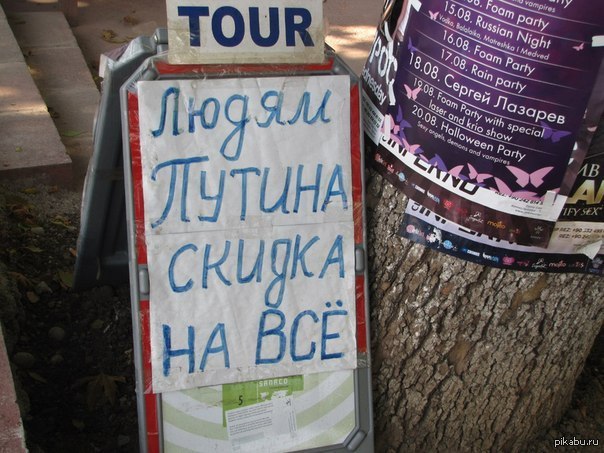 TOUR
ЛЮДЯМ
ПУТИНА
СКИДКА
НА ВСЁ
SANACO
5
15.08. Russian Night
Vodka, Balalaika, Matreshka I Medved
16.08. Foam Party
17.08. Rain party
18.08. Сергей Лазарев
19.08. Foam Party with special
laser and krio show
20.08. Halloween Party
Sexy angels, demons and vampires
INFERNO
pikabu.ru